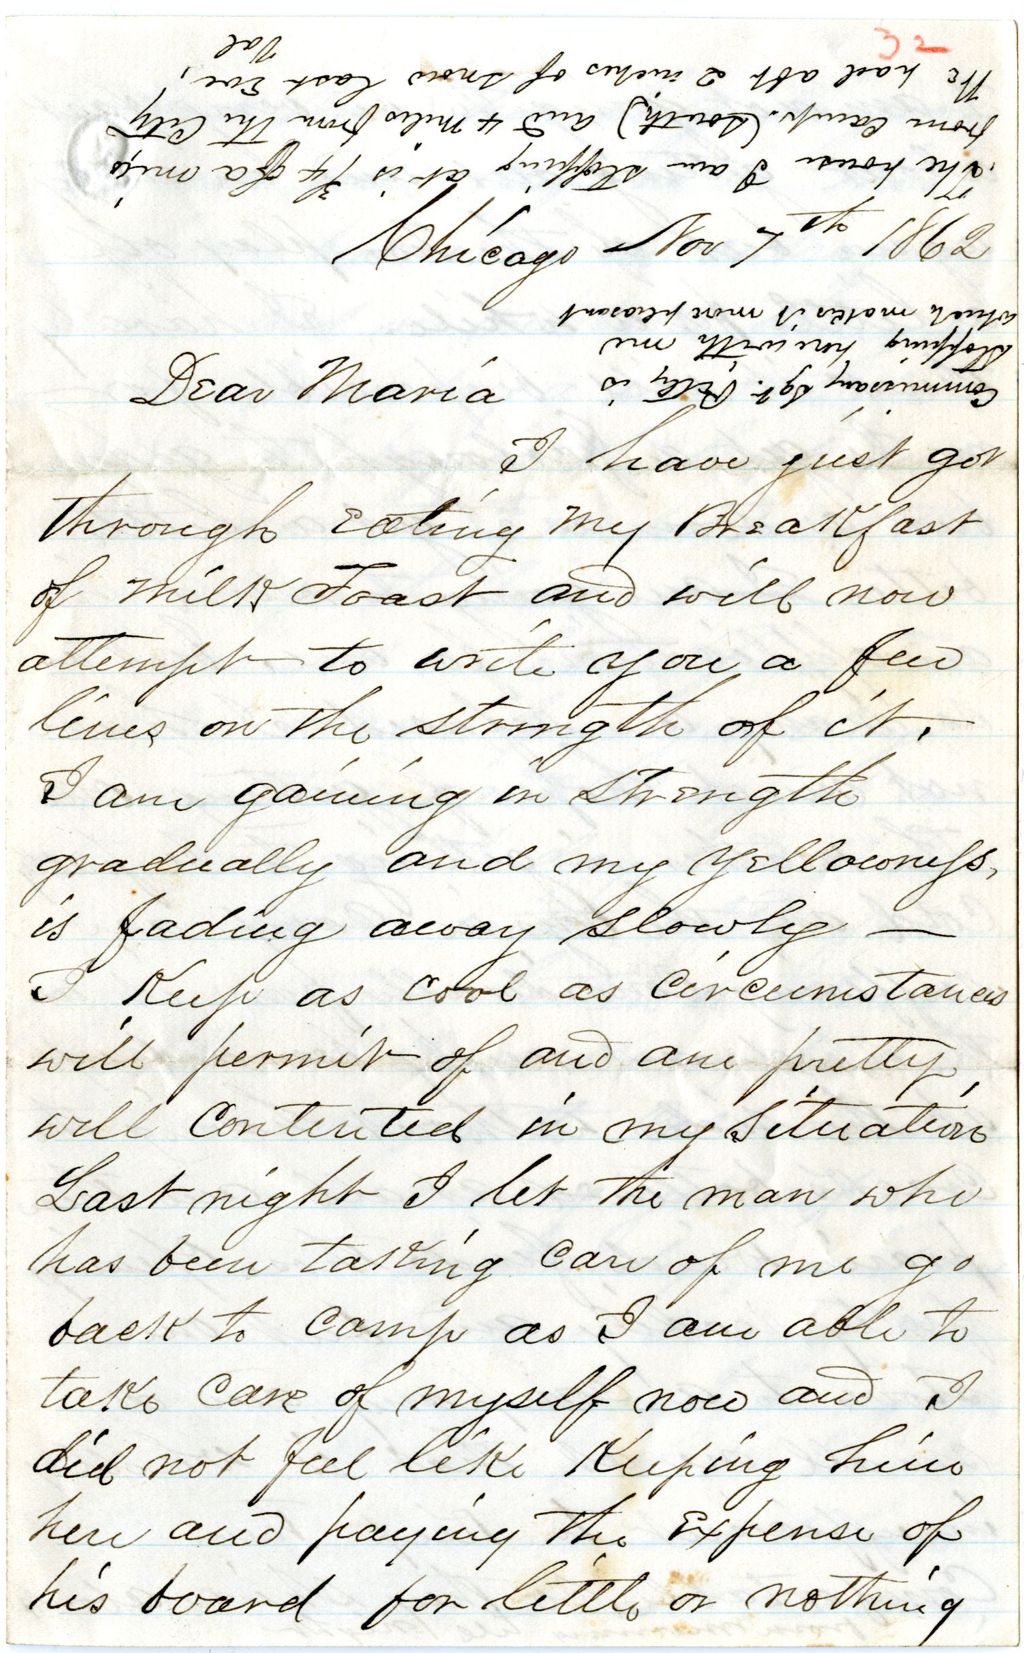 32
Chicago Nov 7th 1862
The house I am stopping at is 3/4 of a mile
from Camp. (South) and 4 miles from the City
We had abt 2 inches of snow last Eve,
Val
Commissary Sgt. is
stopping here with me
which makes it more pleasant
Dear Maria
I have just got
through eating my Breakfast
of Milk Toast and will now
attempt to write you a few
lines on the strength of it.
I am gaining in strength
gradually and my yellowness,
is fading away slowly —
I Keep as cool as circumstances
will permit of and am pretty
well contented in my situation
Last night I let the man who
has been taking care of me go
back to camp as I am able to
take care of myself now and I
did not feel like Keeping him
here and paying the expense of
his board for little or nothing